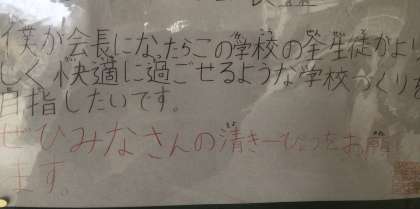 僕が会長になったらこの学校の全生徒がより
しく快適に過ごせるような学校づくりを
目指したいです。
ぜひみなさんの清き一ぴょうをお願い
ます。